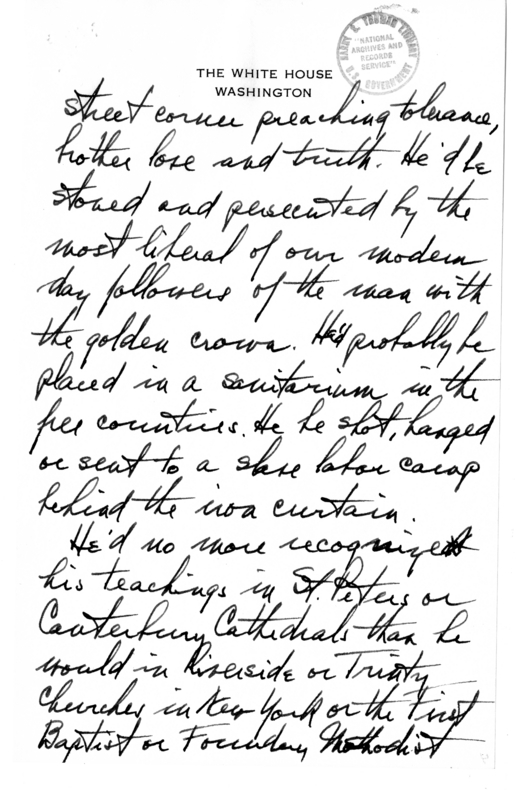 HARRY S. TRUMAN LIBRARY
"NATIONAL
ARCHIVES AND
RECORDS
SERVICE"
U.S. GOVERNMENT
THE WHITE HOUSE
WASHINGTON
street corner preaching tolerance,
brother love and truth. He'd be
stoned and persecuted by the
most liberal of our modern
day followers of the man with
the golden crown. He'd probably be
placed in a sanitarium in the
free countries. He be shot, hanged
or sent to a slave labor camp
behind the iron curtain.
He'd no more recognize
his teachings in St. Peters or
Canterbury Cathedrals than he
would in Riverside or Trinty
Churches in New York or the First
Baptist or Foundery Methodist